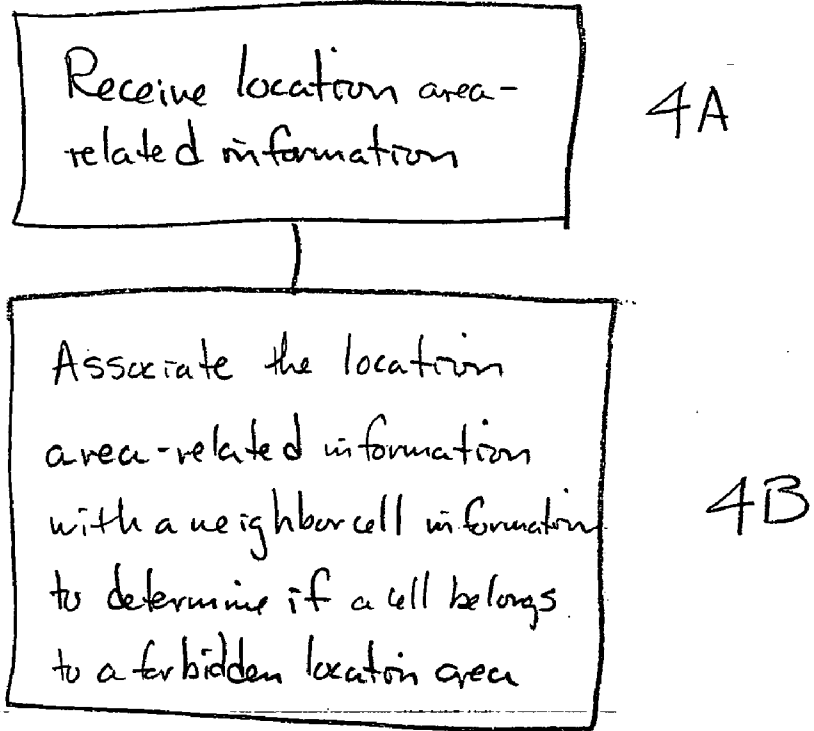 Receive location area-
related information
4A
Associate the location
area-related information
with a neighbor cell information
to determine if a cell belongs
to a forbidden location area
4B